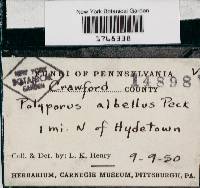 New York Botanical Garden
1766338
NEW YORK
BOTANICAL
GARDEN
FUNGI OF PENNSYLVANIA
14898
Crawford COUNTY
Polyporus albellus Peck
1 mi. N of Hydetown
Coll. & Det. by: L. K. Henry 9-9-50
HERBARIUM, CARNEGIE MUSEUM, PITTSBURGH, PA.